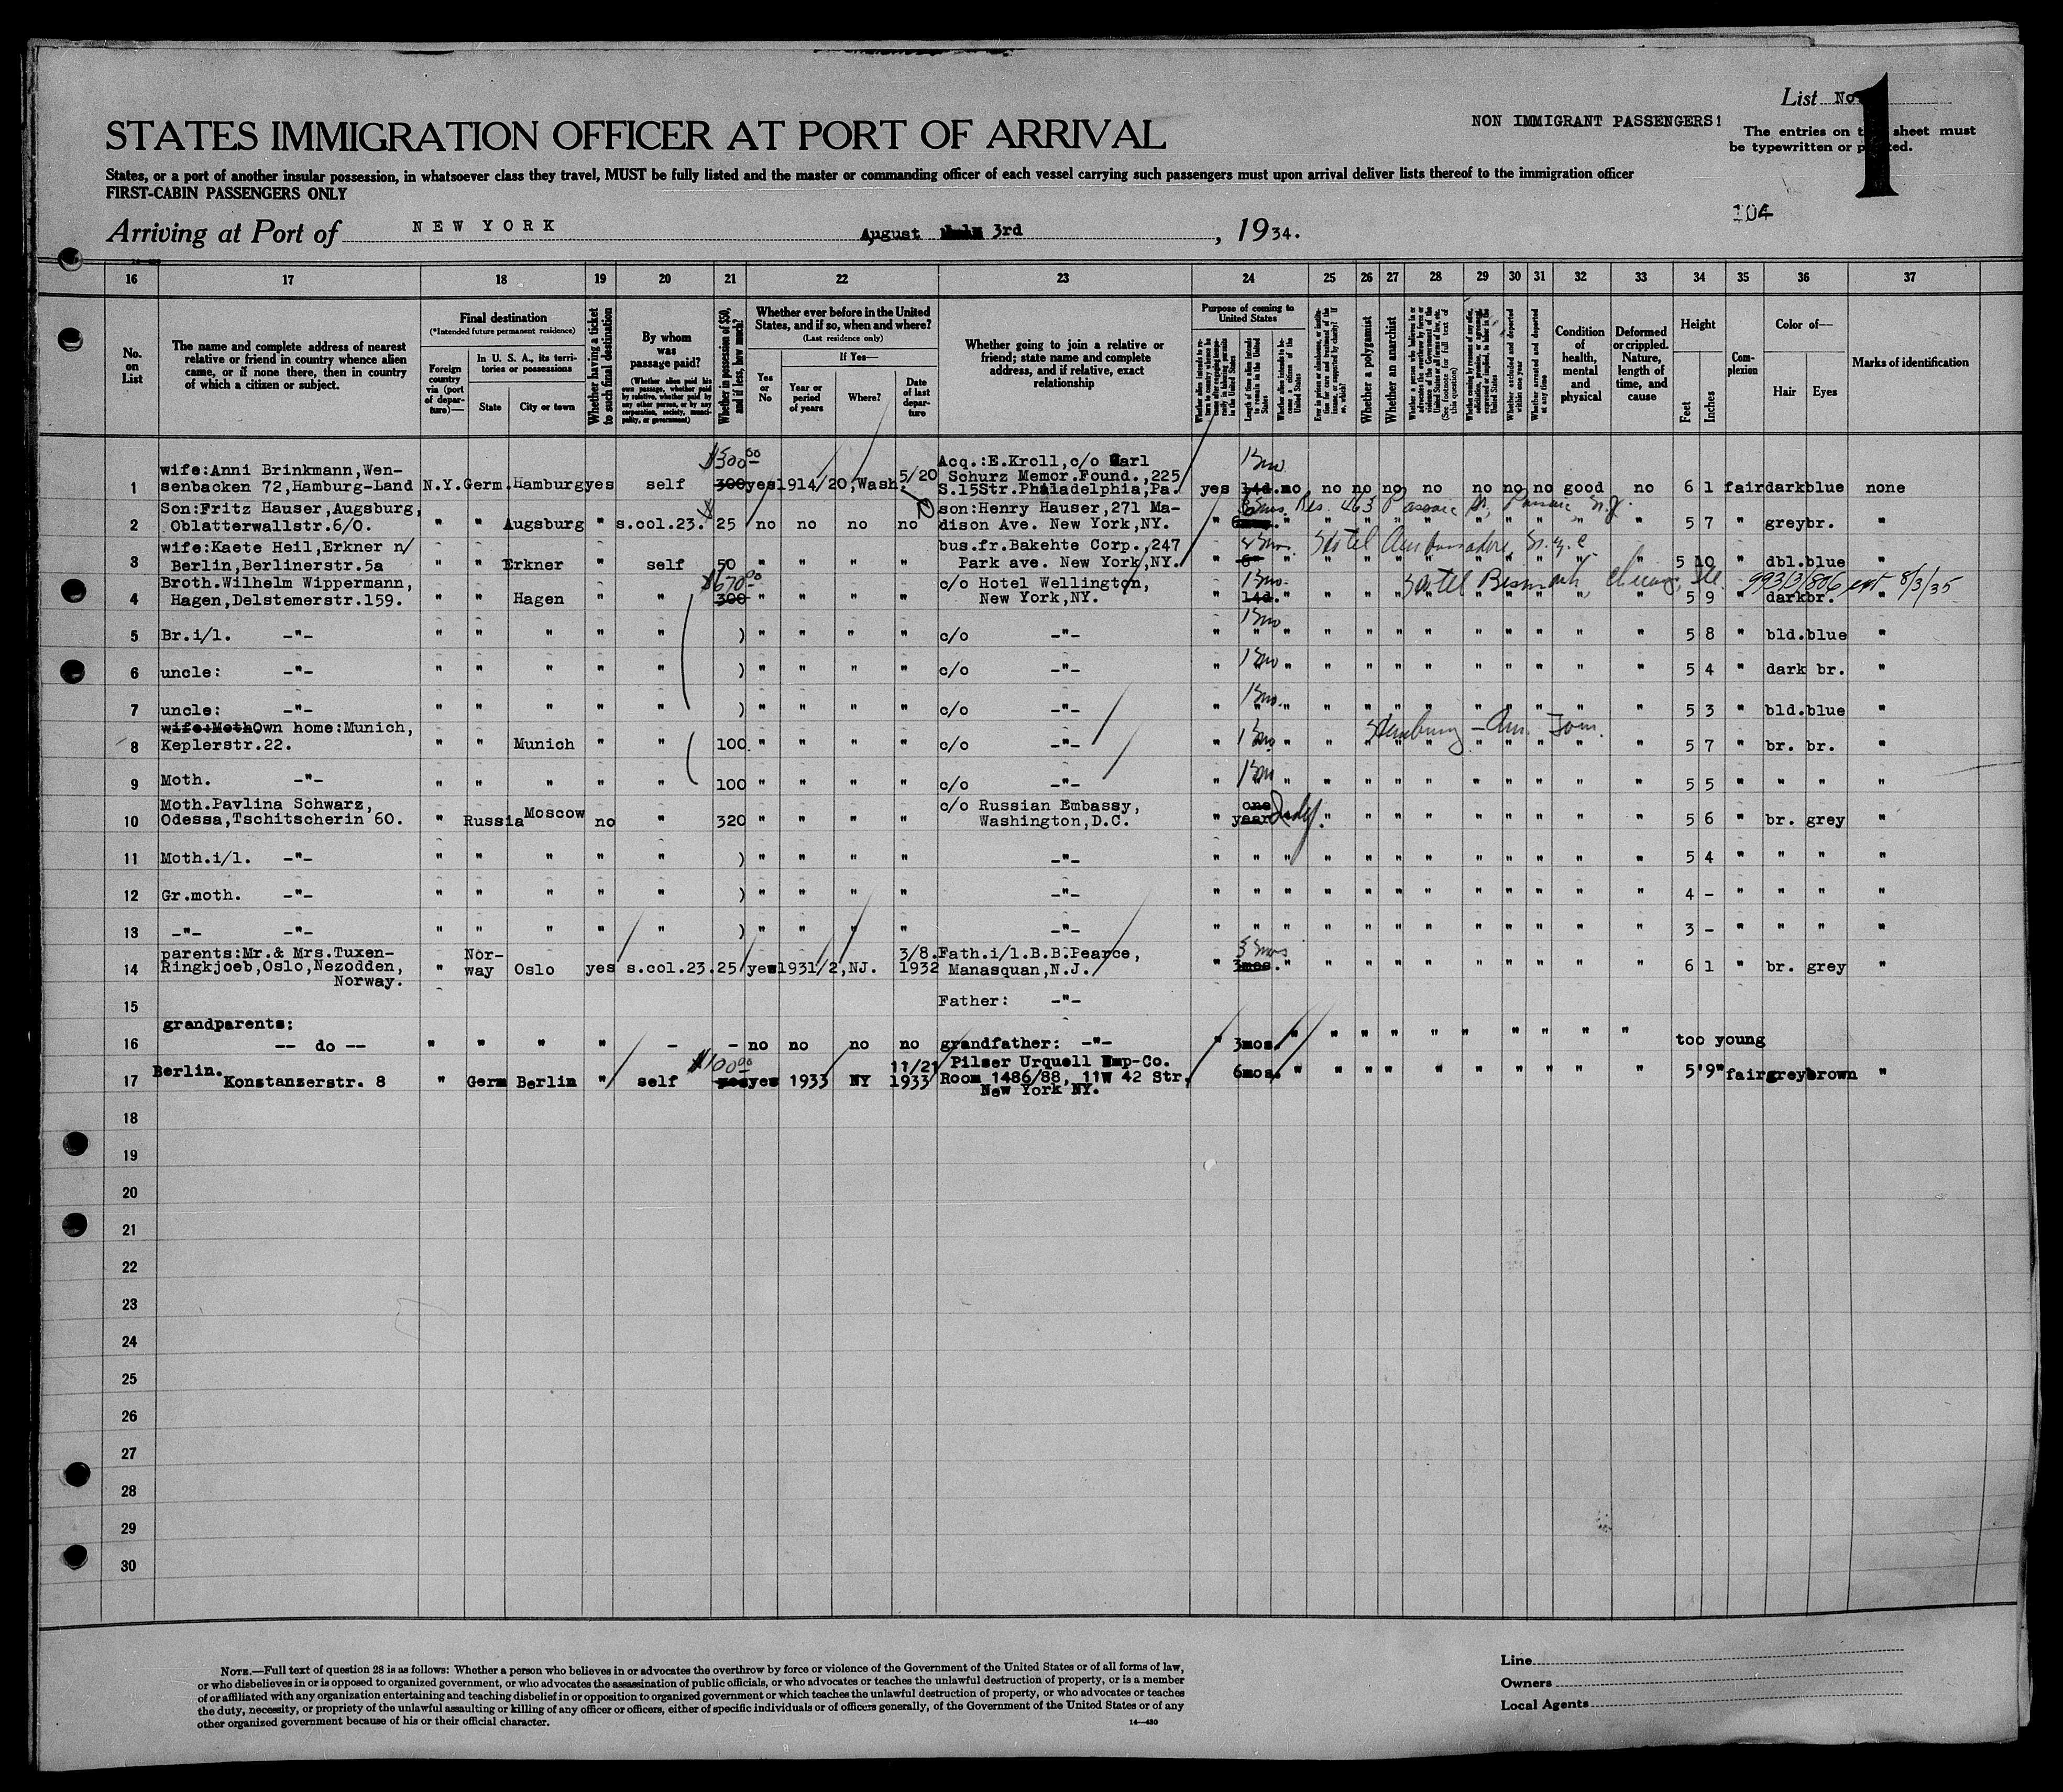 List No. 1
NON IMMIGRANT PASSENGERS!
STATES IMMIGRATION OFFICER AT PORT OF ARRIVAL
The entries on this sheet must
be typewritten or printed.
States, or a port of another insular possession, in whatsoever class they travel, MUST be fully listed and the master or commanding officer of each vessel carrying such passengers must upon arrival deliver lists thereof to the immigration officer
FIRST-CABIN PASSENGERS ONLY
104
Arriving at Port of NEW YORK August 3rd, 1934.
16 17 18 19 20 21 22 23 24 25 26 27 28 29 30 31 32 33 34 35 36 37
No. on List
The name and complete address of nearest relative or friend in country whence alien came, or if none there, then in country of which a citizen or subject.
Final destination
(*Intended future permanent residence)
Foreign country via (port of departure)—
In U. S. A., its territories or possessions
State
City or town
Whether having a ticket to such final destination
By whom was passage paid?
(Whether alien paid his own passage, whether paid by relative, whether paid by any other person, or by any corporation, society, municipality, or government)
Whether in possession of $50, and if less, how much?
Whether ever before in the United States, and if so, when and where?
(Last residence only)
Yes or No
If Yes—
Year or period of years
Where?
Date of last departure
Whether going to join a relative or friend; state name and complete address, and if relative, exact relationship
Purpose of coming to United States
Length of time alien intends to remain in the United States
Whether alien intends to become a citizen of the United States
Whether a polygamist
Whether an anarchist
(See footnote for full text of this question)
Whether excluded and deported within one year
Whether arrested and deported at any time
Condition of health, mental and physical
Deformed or crippled. Nature, length of time, and cause
Height
Feet
Inches
Complexion
Color of—
Hair
Eyes
Marks of identification
$500 00 5/20 Acq.:E.Kroll,c/o Carl 1 mo
wife:Anni Brinkmann,Wen- Schurz Memor.Found.,225
1 senbacken 72,Hamburg-Land N.Y. Germ. Hamburg yes self 300 yes 1914/20,Wash. S.15Str.Philadelphia,Pa. yes 14d. no no no no no no no no good no 6 1 fair dark blue none
Son:Fritz Hauser,Augsburg, son:Henry Hauser,271 Ma- Res. 463 Passaic St, Passaic N.J.
2 Oblatterwallstr.6/0. " " Augsburg " s.col.23. 25 no no no no dison Ave. New York,NY. " " " " " " " " " " " " 5 7 " grey br. "
wife:Kaete Heil,Erkner n/ bus.fr.Bakehte Corp.,247 Hotel Ambassador, N.Y.C.
3 Berlin,Berlinerstr.5a " " Erkner " self 50 " " " " Park ave. New York,NY. " " " " " " " " " " " " 5 10 " dbl. blue "
Broth.Wilhelm Wippermann, $670 00 c/o Hotel Wellington, 1 mo. Hotel Bismark, Chicago, Ill. 99313/806 ext 8/3/35
4 Hagen,Delstemerstr.159. " " Hagen " " 300 " " " " New York,NY. " 14d. " " " " " " " " " " " 5 9 " dark br. "
5 Br.i/l. -"- " " " " " ) " " " " c/o -"- " 1 mo " " " " " " " " " " " 5 8 " bld. blue "
6 uncle: -"- " " " " " ) " " " " c/o -"- " 1 mo " " " " " " " " " " " 5 4 " dark br. "
7 uncle: -"- " " " " " ) " " " " c/o -"- " 1 mo. " " " " " " " " " " " 5 3 " bld. blue "
wife:Moth Own home:Munich, Hamburg - Am.
8 Keplerstr.22. " " Munich " " 100 " " " " c/o -"- " 1 mo " " " " " " " " " " " 5 7 " br. br. "
9 Moth. -"- " " " " " 100 " " " " c/o -"- " 1 mo " " " " " " " " " " " 5 5 " " " "
Moth.Pavlina Schwarz, c/o Russian Embassy,
10 Odessa,Tschitscherin 60. " Russia Moscow no " 320 " " " " Washington,D.C. " one year " " " " " " " " " " 5 6 " br. grey "
11 Moth.i/l. -"- " " " " " ) " " " " -"- " " " " " " " " " " " " " 5 4 " " " "
12 Gr.moth. -"- " " " " " ) " " " " -"- " " " " " " " " " " " " " 4 - " " " "
13 -"- -"- " " " " " ) " " " " -"- " " " " " " " " " " " " " 3 - " " " "
parents:Mr.& Mrs.Tuxen- Nor- 3/8. Fath.i/l.B.B.Pearce, 3 mos
14 Ringkjoeb,Oslo,Nezodden, " way Oslo yes s.col.23. 25 yes 1931/2,NJ. 1932 Manasquan,N.J. " 3mos. " " " " " " " " " " " 6 1 " br. grey "
Norway.
15 Father: -"-
grandparents:
16 -- do -- " " " " - - no no no no grandfather: -"- " 3mos. " " " " " " " " " " too young
Berlin. $100 00 11/21 Pilser Urquell Imp-Co.
17 Konstanzerstr. 8 " Germ Berlin " self yes yes 1933 NY 1933 Room 1486/88, 11W 42 Str. 6mos. " " " " " " " " " " " 5'9" fair grey brown "
New York NY.
18
19
20
21
22
23
24
25
26
27
28
29
30
NOTE.—Full text of question 28 is as follows: Whether a person who believes in or advocates the overthrow by force or violence of the Government of the United States or of all forms of law,
or who disbelieves in or is opposed to organized government, or who advocates the assassination of public officials, or who advocates or teaches the unlawful destruction of property, or is a member
of or affiliated with any organization entertaining and teaching disbelief in or opposition to organized government or which teaches the unlawful destruction of property, or who advocates or teaches
the duty, necessity, or propriety of the unlawful assaulting or killing of any officer or officers, either of specific individuals or of officers generally, of the Government of the United States or of any
other organized government because of his or their official character.
14—430
Line
Owners
Local Agents